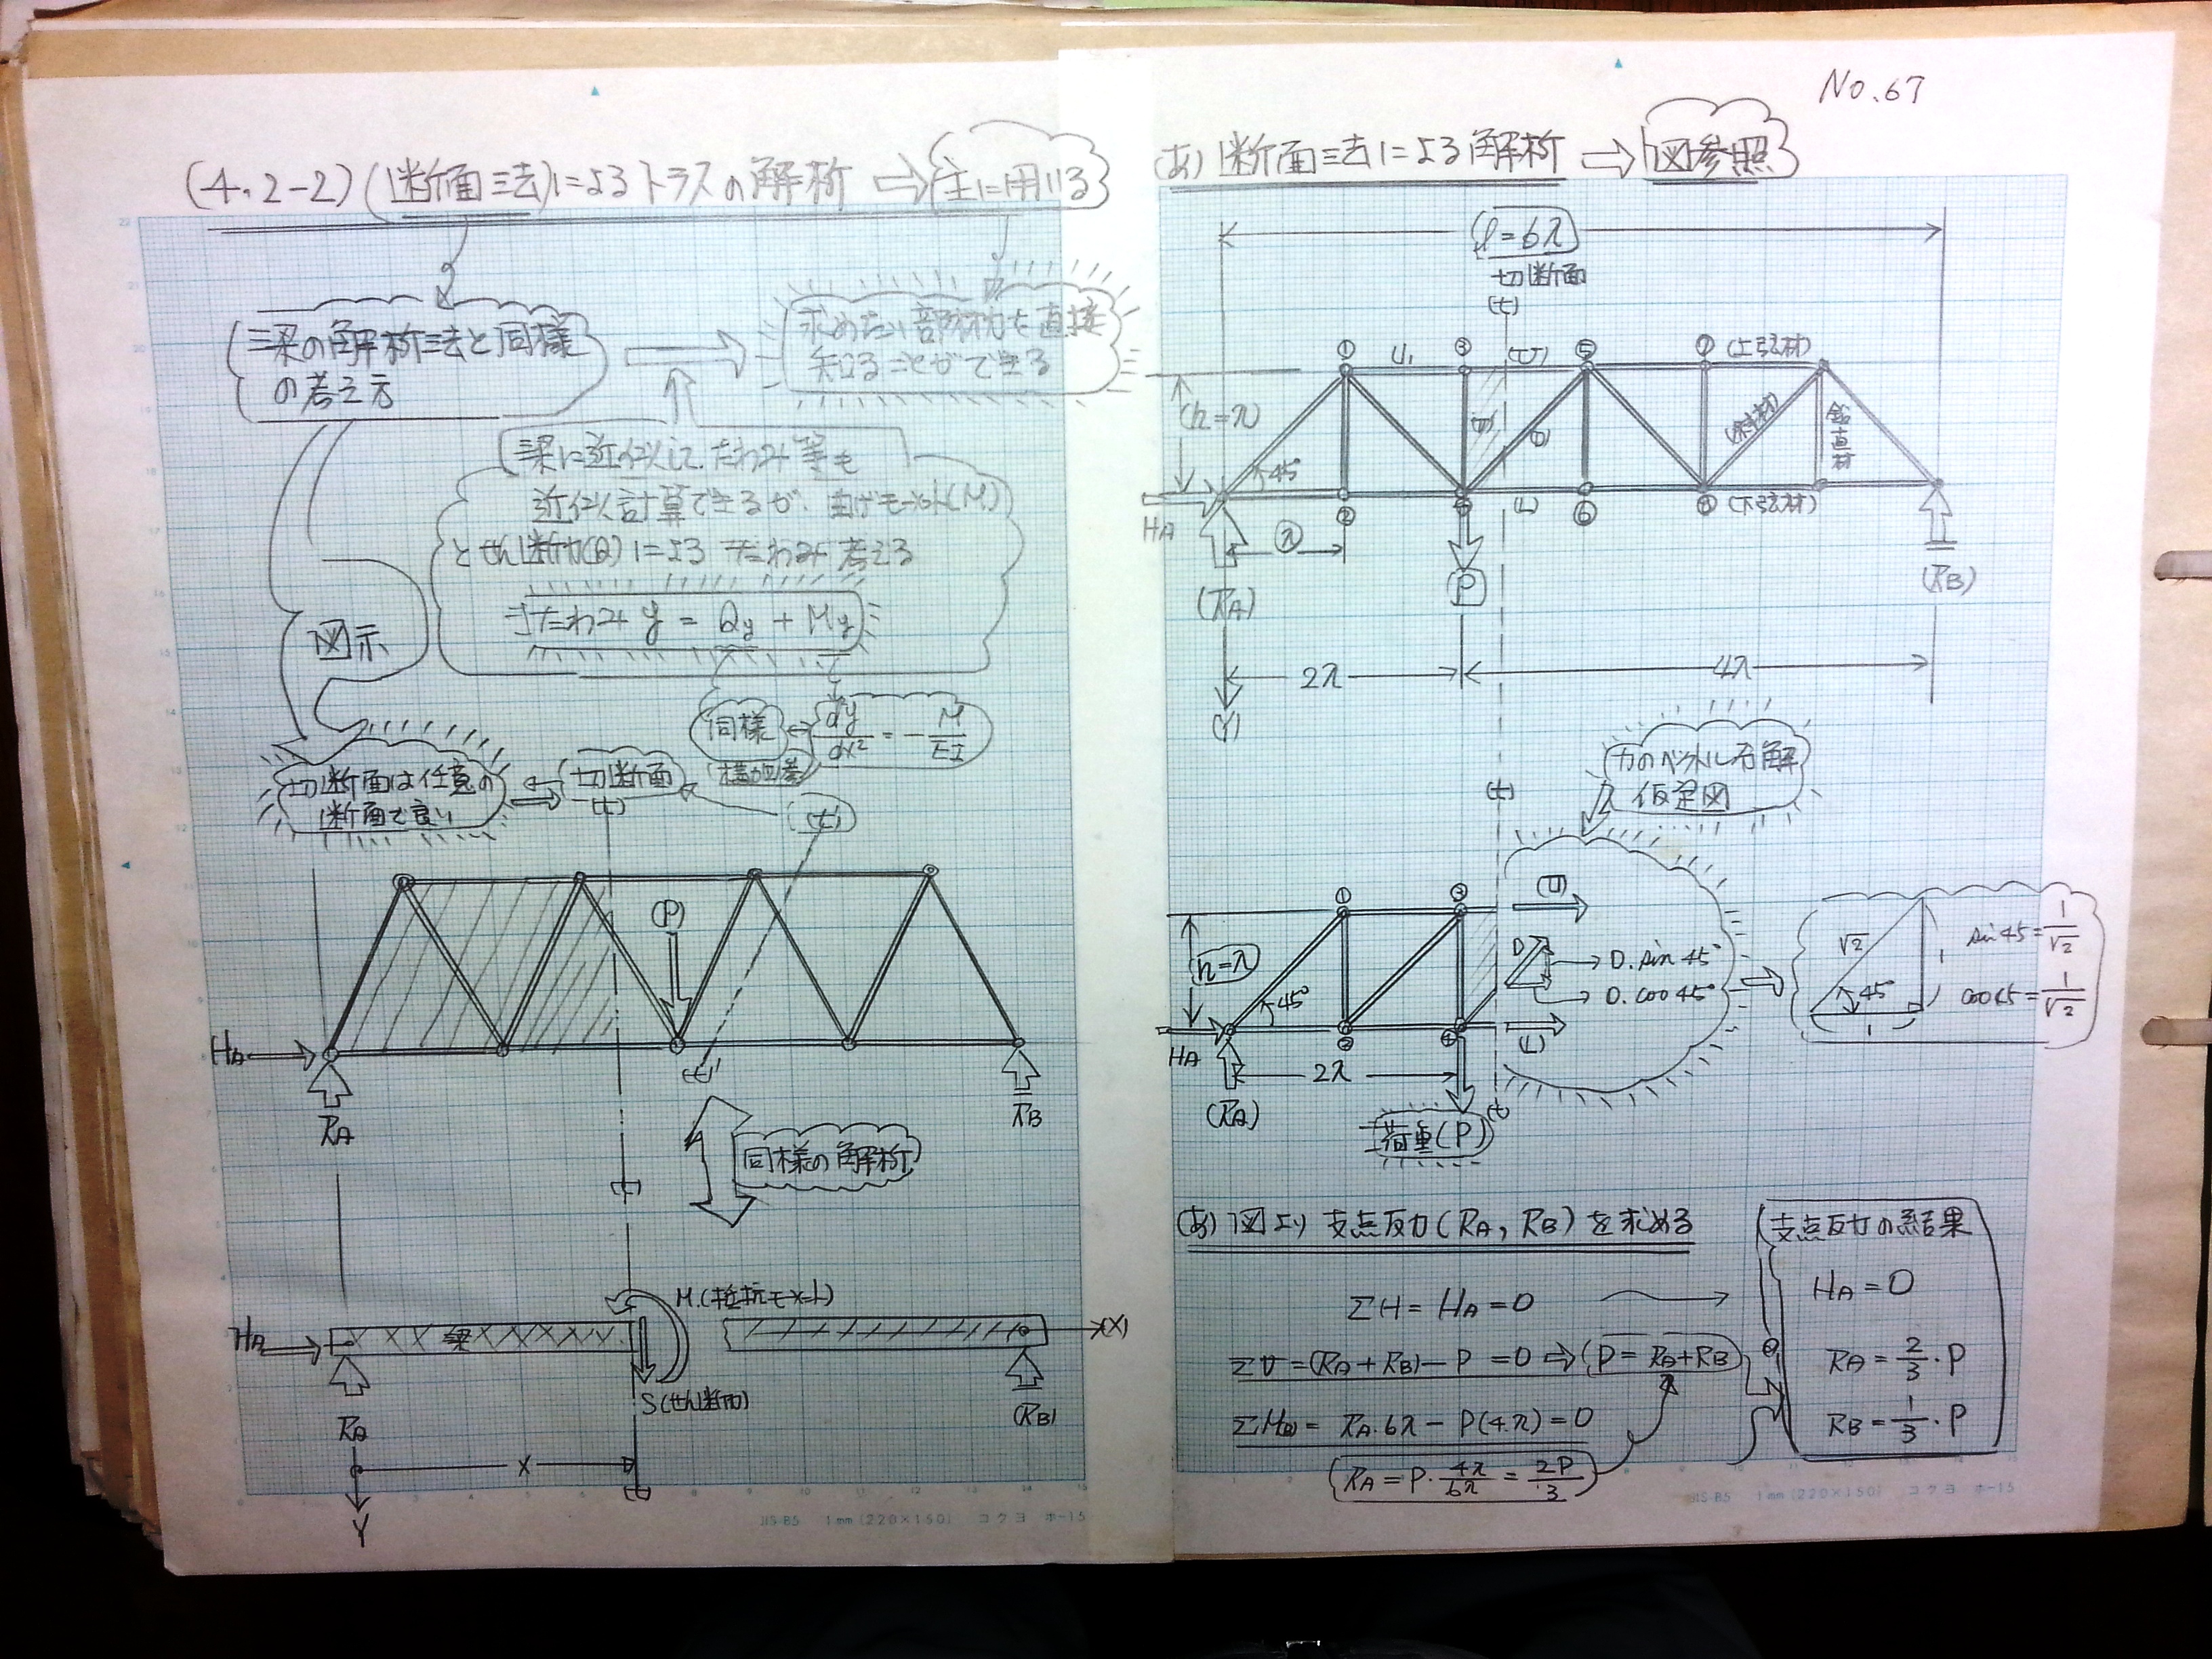 No.67
(4.2-2)(断面法)によるトラスの解析 ⇨ 主に用いる
梁の解析法と同様
の考え方
求めたい部材力を直接
知ることができる
梁に近似して、たわみ等も
近似計算できるが、曲げモーメント(M)
とせん断力(Q)によるたわみ考える
たわみ y = Qy + My
図示
同様
dy/dx² = -M/EI
切断面は任意の
断面で良い
切断面
(t)
(t')
(P)
HA
RA
RB
(t')
同様の解析
(t)
M.(抵抗モーメント)
HA
梁
(X)
S(せん断力)
RA
(RB)
X
(t)
Y
JIS-B5 1mm(220×150) コクヨ ホ-15
(あ)断面法による解析 ⇨ 図参照
(l=6λ)
切断面
(t)
① U₁ ③ (U) ⑤ ⑦ (上弦材)
(h=λ)
(D)
(斜材)
鉛直材
45°
HA
② ④ (L) ⑥ ⑧ (下弦材)
(λ)
(P)
(RA)
(RB)
2λ
4λ
(Y)
力のベクトル分解
仮定図
(t)
① ③ (U)
h=λ
D
D.sin45°
D.cos45°
45°
HA
② ④ (L)
2λ
(RA)
(t)
荷重(P)
√2
1
45°
1
sin45=1/√2
cos45=1/√2
(あ)図より支点反力(RA, RB)を求める
ΣH = HA = 0
ΣV = (RA + RB) - P = 0 ⇨ (P = RA+RB)
ΣM(B) = RA.6λ - P(4.λ) = 0
(RA = P.4λ/6λ = 2P/3)
支点反力の結果
HA = 0
RA = 2/3.P
RB = 1/3.P
JIS-B5 1mm(220×150) コクヨ ホ-15